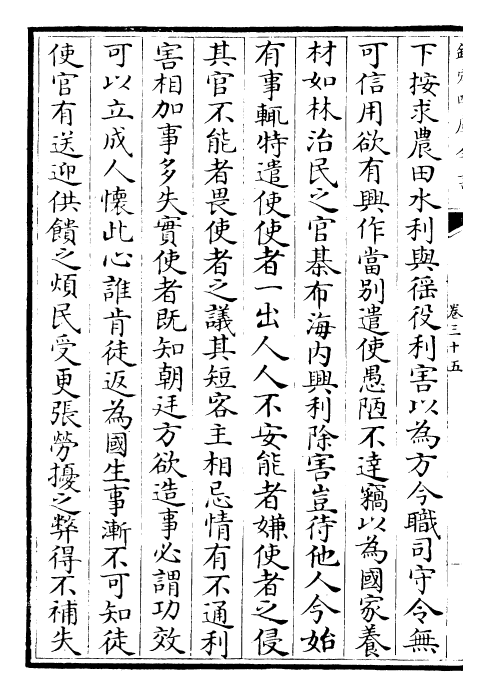 卷三十五
下按求農田水利與徭役利害以為方今職司守令無
可信用欲有興作當别遣使愚陋不達竊以為國家養
材如林治民之官棊布海内興利除害豈待他人今始
有事輒特遣使使者一出人人不安能者嫌使者之侵
其官不能者畏使者之議其短客主相忌情有不通利
害相加事多失實使者既知朝廷方欲造事必謂功效
可以立成人懷此心誰肯徒返為國生事漸不可知徒
使官有送迎供饋之煩民受更張勞擾之弊得不補失